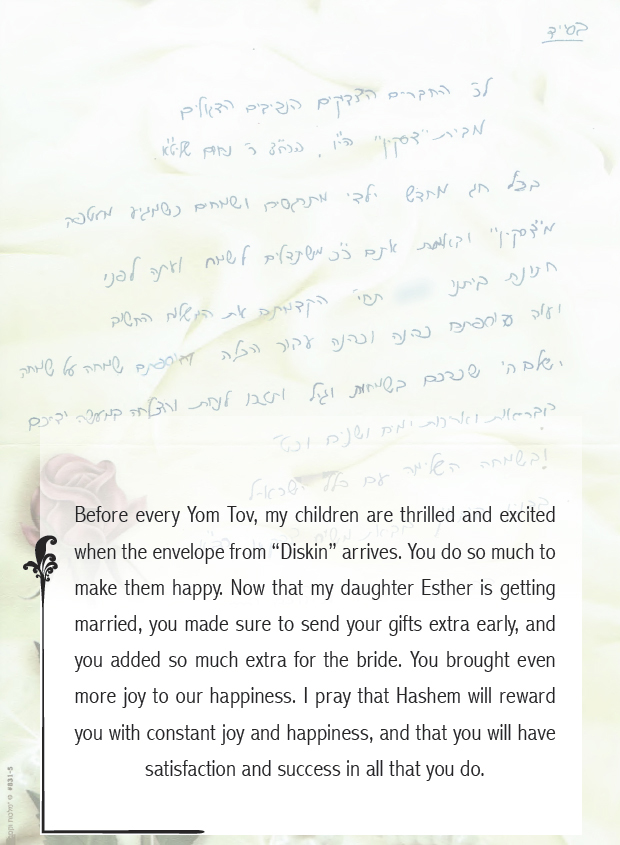 בס״ד
לכ׳ החברים הצדקים הנפיבים הדגולים
מבית ״דסקין״ הי״ו, הרה״ג ר׳ נחום שליט״א
בכל חג מחדש ילדי מתרגשים ושמחים כשמגיע מעטפה
מ״דסקין״ ובאמת אתם כ״כ משתדלים לשמח ועתה לפני
חתונת ביתנו תחי׳ הקדמתם את המשלוח החשוב
ועוד הוספתם כהנה וכהנה עבור הכלה והוספתם שמחה על שמחה
ישלם ה׳ שכרכם בשמחות וגיל ותזכו לנחת והצלחה במעשה ידיכם
ובבריאות ואריכות ימים ושנים וכט״ס
בשמחה השלימה עם כלל ישראל!
Before every Yom Tov, my children are thrilled and excited
when the envelope from “Diskin” arrives. You do so much to
make them happy. Now that my daughter Esther is getting
married, you made sure to send your gifts extra early, and
you added so much extra for the bride. You brought even
more joy to our happiness. I pray that Hashem will reward
you with constant joy and happiness, and that you will have
satisfaction and success in all that you do.
#831-5